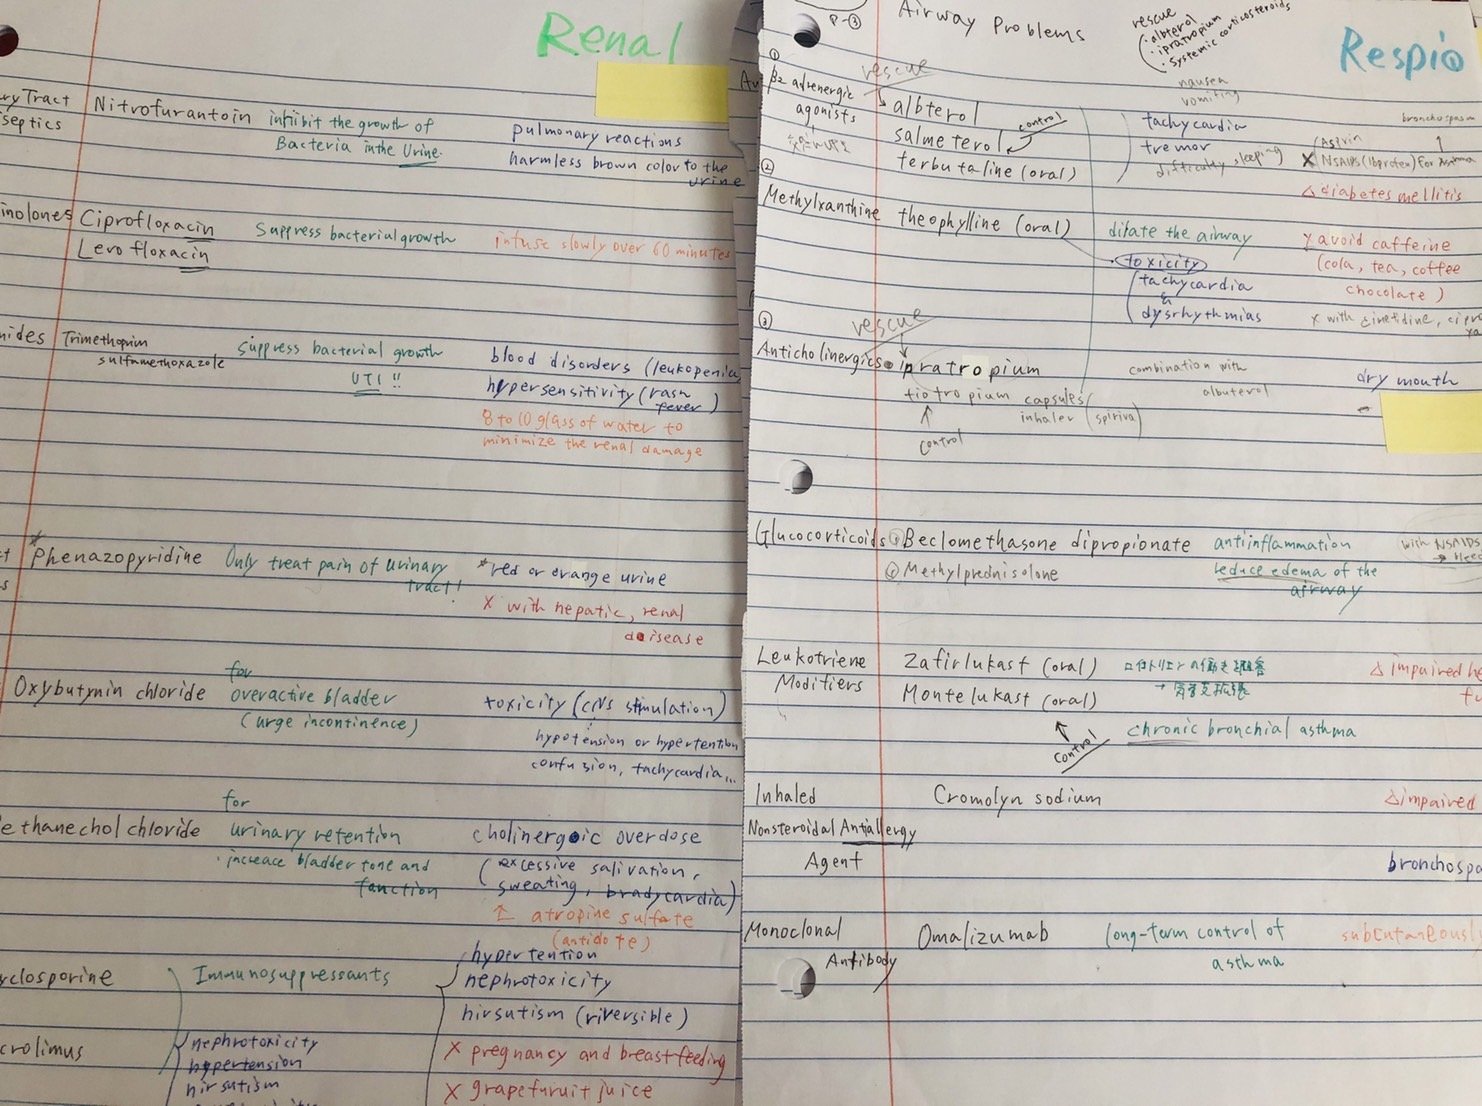 Renal
ry Tract Nitrofurantoin inhibit the growth of
septics Bacteria in the Urine.
pulmonary reactions
harmless brown color to the
urine
inolones Ciprofloxacin Suppress bacterial growth infuse slowly over 60 minutes
Levofloxacin
nides Trimethoprim
sulfamethoxazole
suppress bacterial growth
UTI!!
blood disorders (leukopenia
hypersensitivity (rash
fever)
8 to 10 glass of water to
minimize the renal damage
*Phenazopyridine Only treat pain of urinary
tract!
*red or orange urine
X with hepatic, renal
disease
Oxybutynin chloride
for
overactive bladder
(urge incontinence)
toxicity (CNS stimulation)
hypotension or hypertention
confusion, tachycardia...
ethanechol chloride
for
urinary retention
· increace bladder tone and
function
cholinergic overdose
(excessive salivation,
sweating, bradycardia)
atropine sulfate
(antidote)
yclosporine Immunosuppressants
hypertention
nephrotoxicity
hirsutism (riversible)
crolimus
nephrotoxicity
hypertension
hirsutism
X pregnancy and breast feeding
X grapefuruit juice
P-③
Airway Problems
rescue
· albterol
· ipratropium
· systemic corticosteroids
Respio
①
β2 adrenergic
agonists
rescue
albterol
salmeterol control
terbutaline (oral)
nausea
vomiting
tachycardia
tremor
difficulty sleeping
bronchospasm
Aspirin
X NSAIDs (Ibprofen) for Asthma
△ diabetes mellitis
②
Methylxanthine theophylline (oral)
dilate the airway
· toxicity
tachycardia
&
dysrhythmias
X avoid caffeine
(cola, tea, coffee
chocolate)
X with cimetidine, cipro
③
Anticholinergics
rescue
ipratropium
tiotropium capsules
inhaler (spiriva)
control
combination with
albuterol
dry mouth
Glucocorticoids Beclomethasone dipropionate
Methylprednisolone
antiinflammation
reduce edema of the
airway
with NSAIDS
Leukotriene
Modifiers
Zafirlukast (oral)
Montelukast (oral)
control
chronic bronchial asthma
△ impaired he
fu
Inhaled
Nonsteroidal Antiallergy
Agent
Cromolyn sodium
△impaired
bronchospa
Monoclonal
Antibody
Omalizumab
long-term control of
asthma
subcutaneously